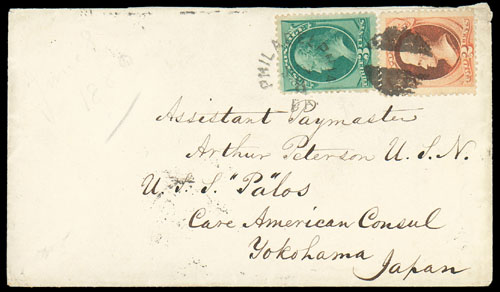 PHILA
PD
Assistant Paymaster
Arthur Peterson U.S.N.
U.S.S. "Palos
Care American Consul
Yokohama
Japan